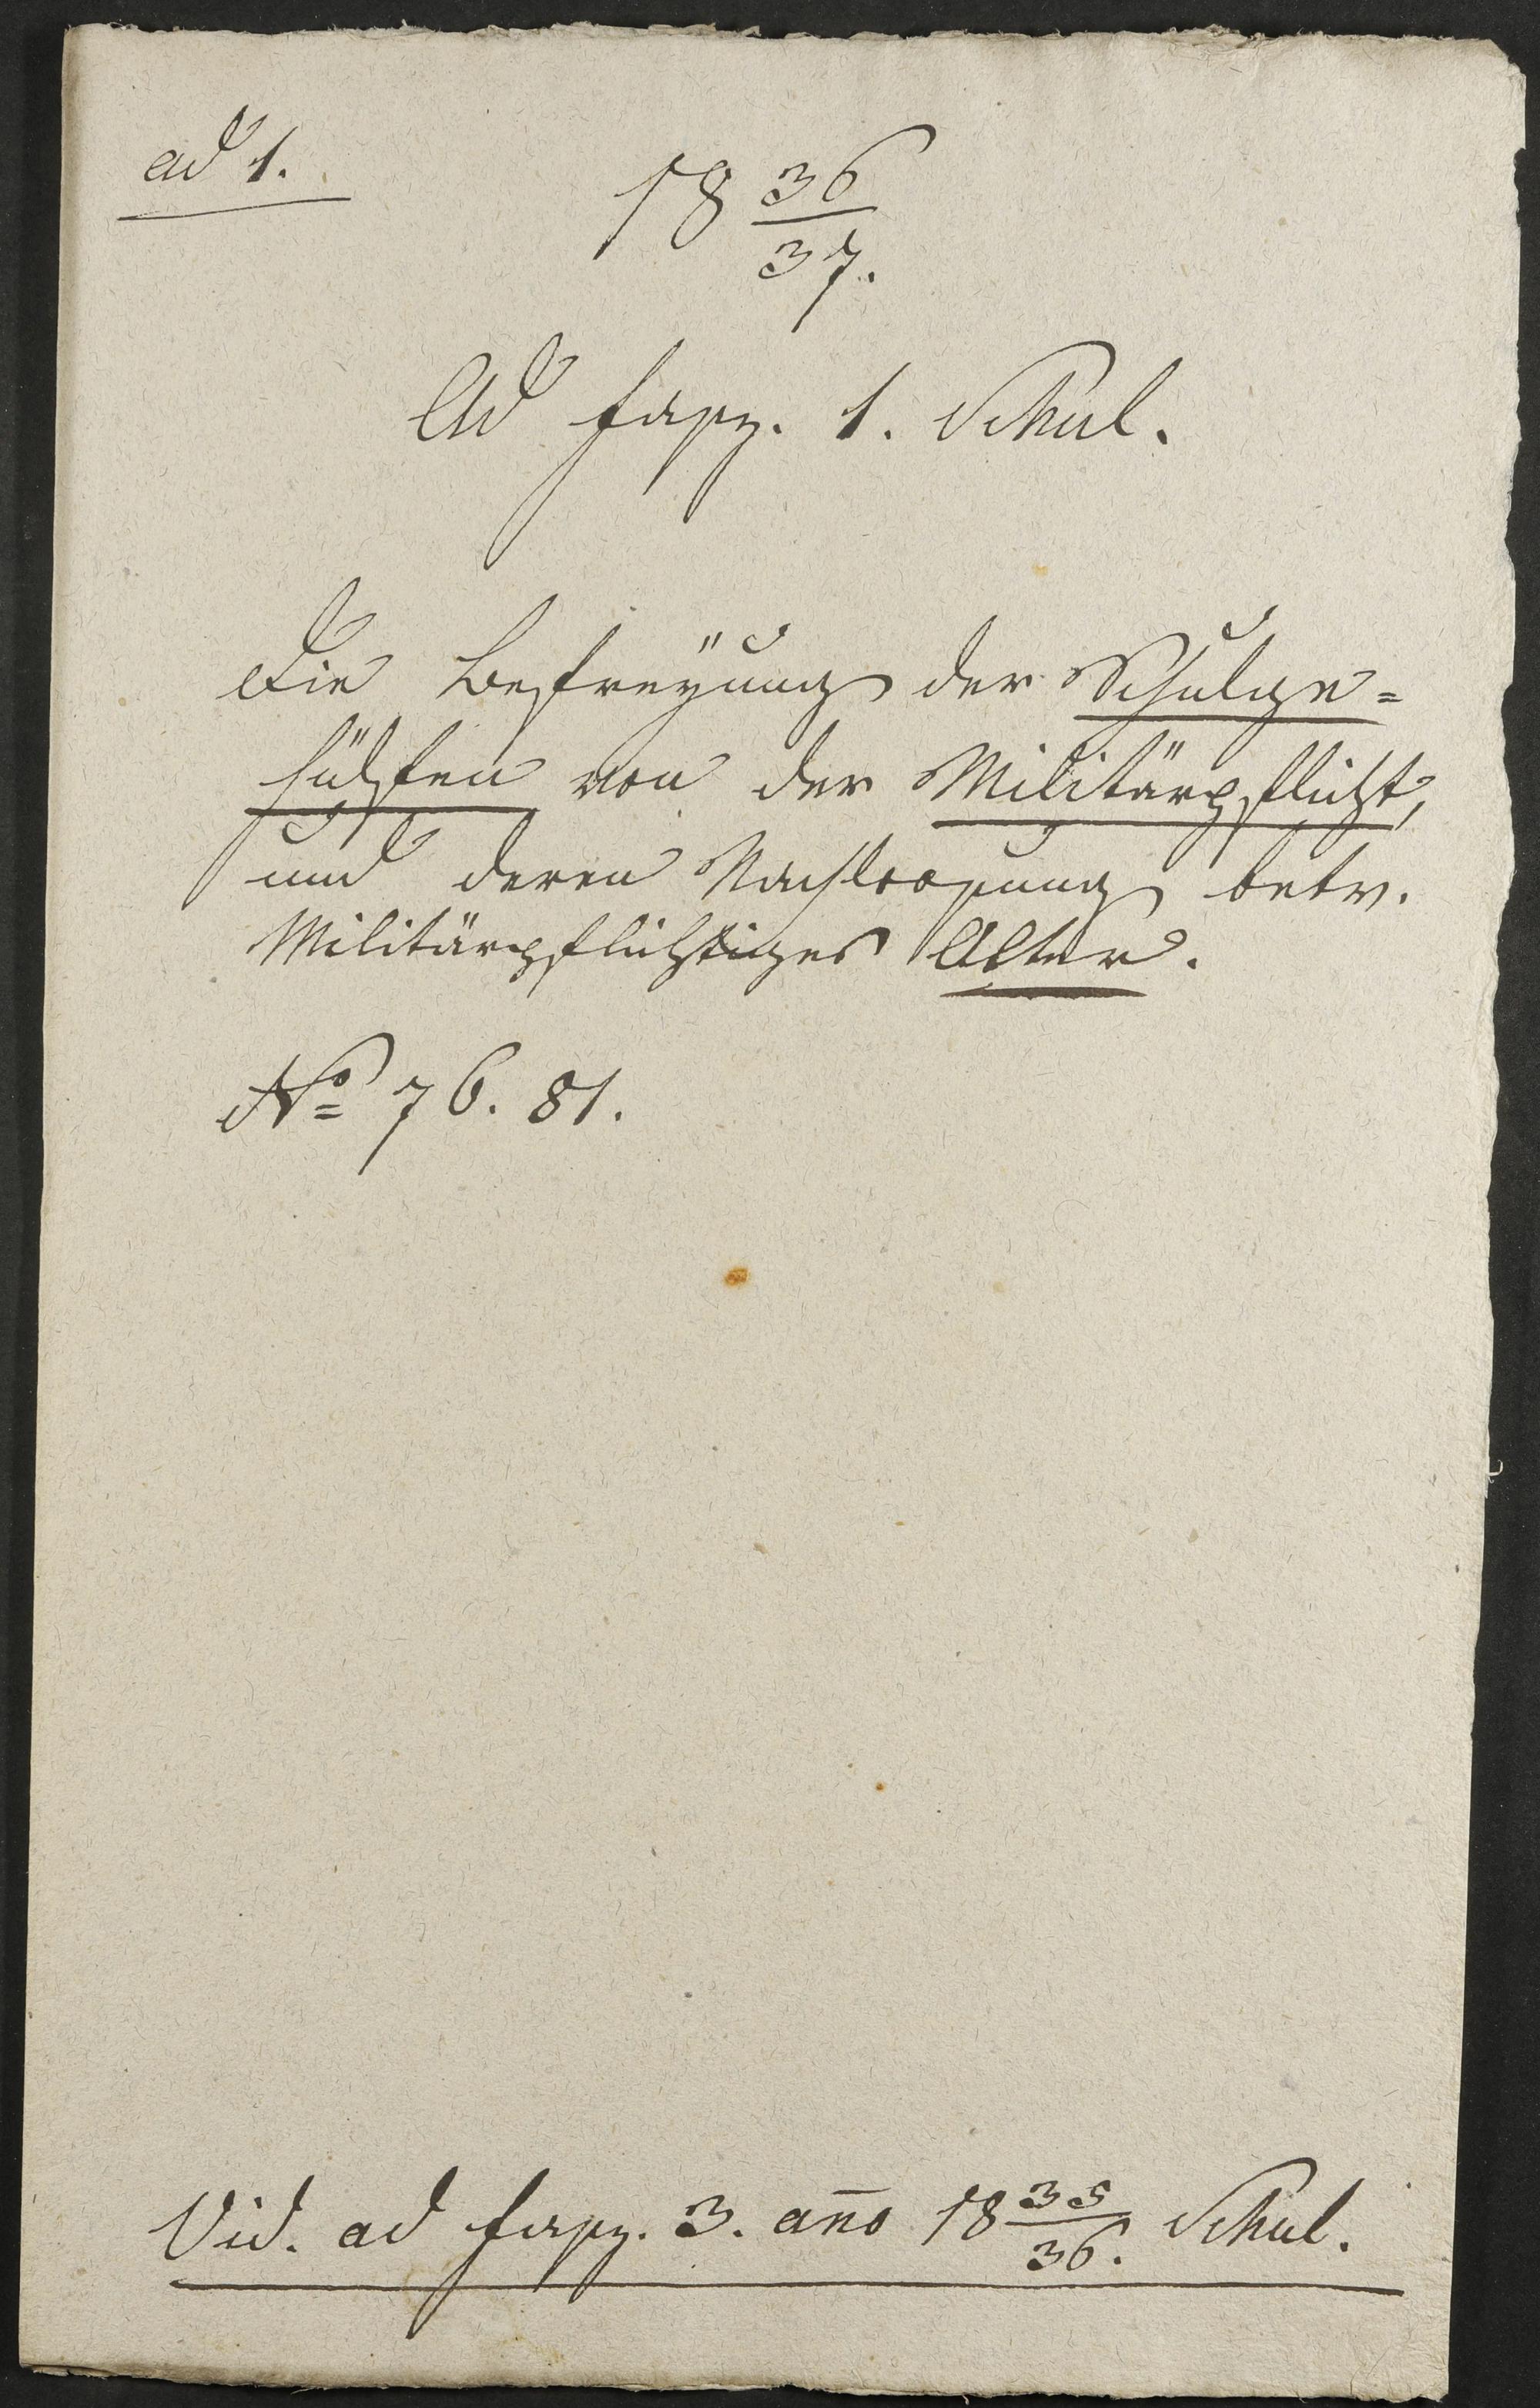 ad 1.
18 36/37.
Ad fasz. 1. Schul.
Die Befreyung der Schulge=
hülfen von der Militärpflicht,
und deren betr.
Militärpflichtiges Alter.
No 76. 81.
Vid. ad fasz. 3. ano 18 35/36. Schul.